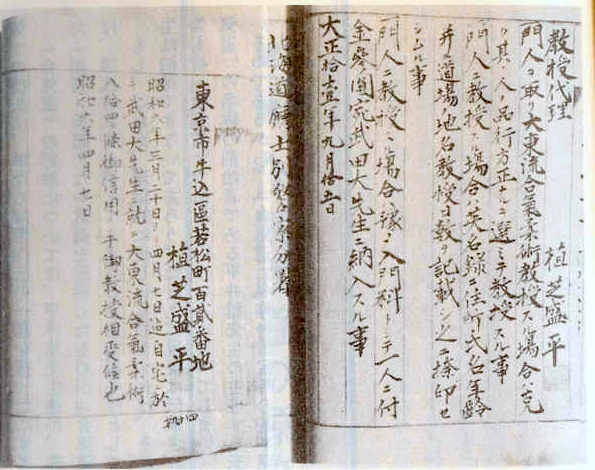 教授代理 植芝盛平
門人ヲ取リ大東流合氣柔術教授スル場合ハ克
ク其ノ人ノ品行方正ナルヲ選ミテ教授スル事
門人ニ教授スル場合ハ英名録ニ住所氏名年齢
并ニ道場地名教授日数ヲ記載シ之ニ捺印セ
シムル事
門人ニ教授スル場合ハ入門料トシテ一人ニ付
金参圓宛武田大先生ニ納入スル事
大正拾壹年九月拾五日
北海道廳士別
東京市牛込區若松町百貳番地
植芝盛平
昭和六年三月二十日ヨリ四月七日迄自宅ニ於
テ武田大先生ニ就キ大東流合氣柔術
八拾四條御信用ノ手御教授相受候也
昭和六年四月七日